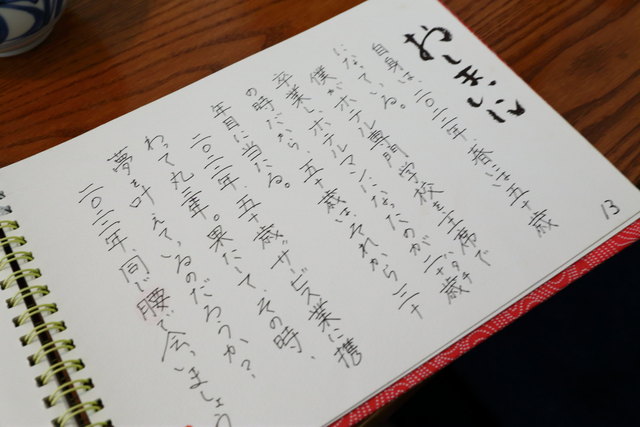 おしまいに
自身は、二〇二二年、春には五十歳
になっている。
僕がホテル専門学校を主席で
卒業しホテルマンになったのが二十歳
ハタチ
の時だから、五十歳は、それから三十
年目に当たる。
二〇二二年、五十歳。サービス業に携
わって丸三十年。果たして、その時、
夢を叶えているのだろうか?
二〇二二年、同じ腰で会いましょう
13